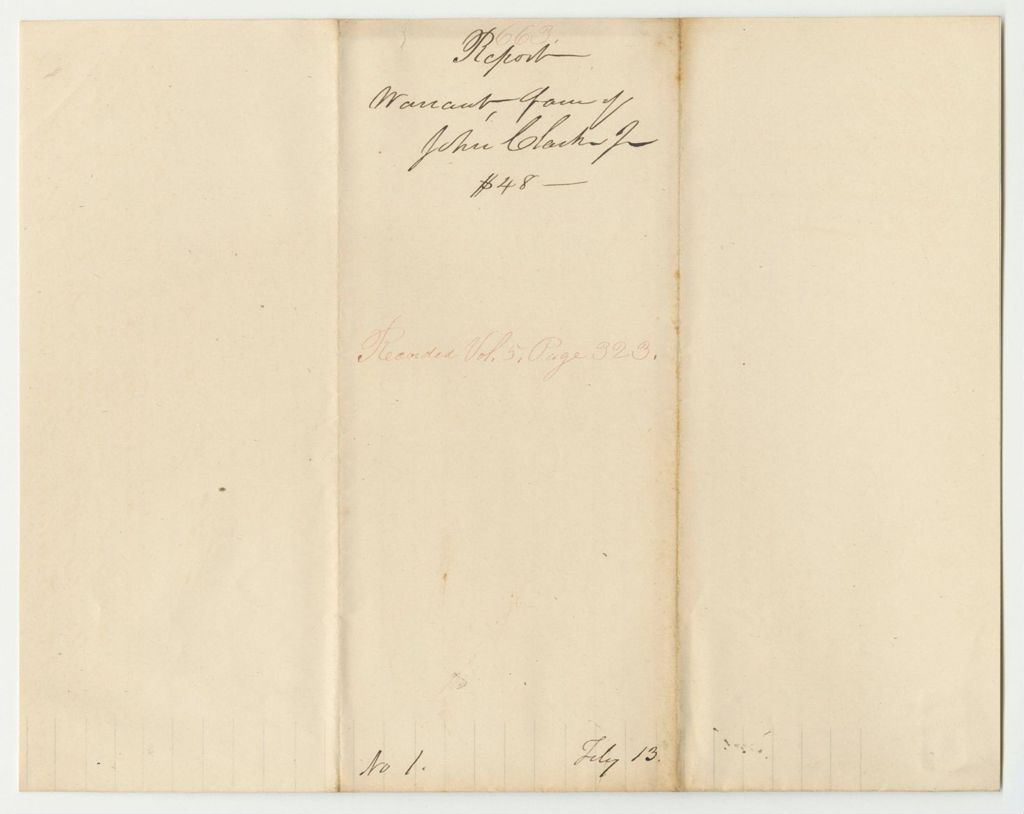 663.
Report
Warrant, favr of
John Clark Jr
$48 —
Recorded Vol. 5, Page 323.
No 1.
Feby 13.